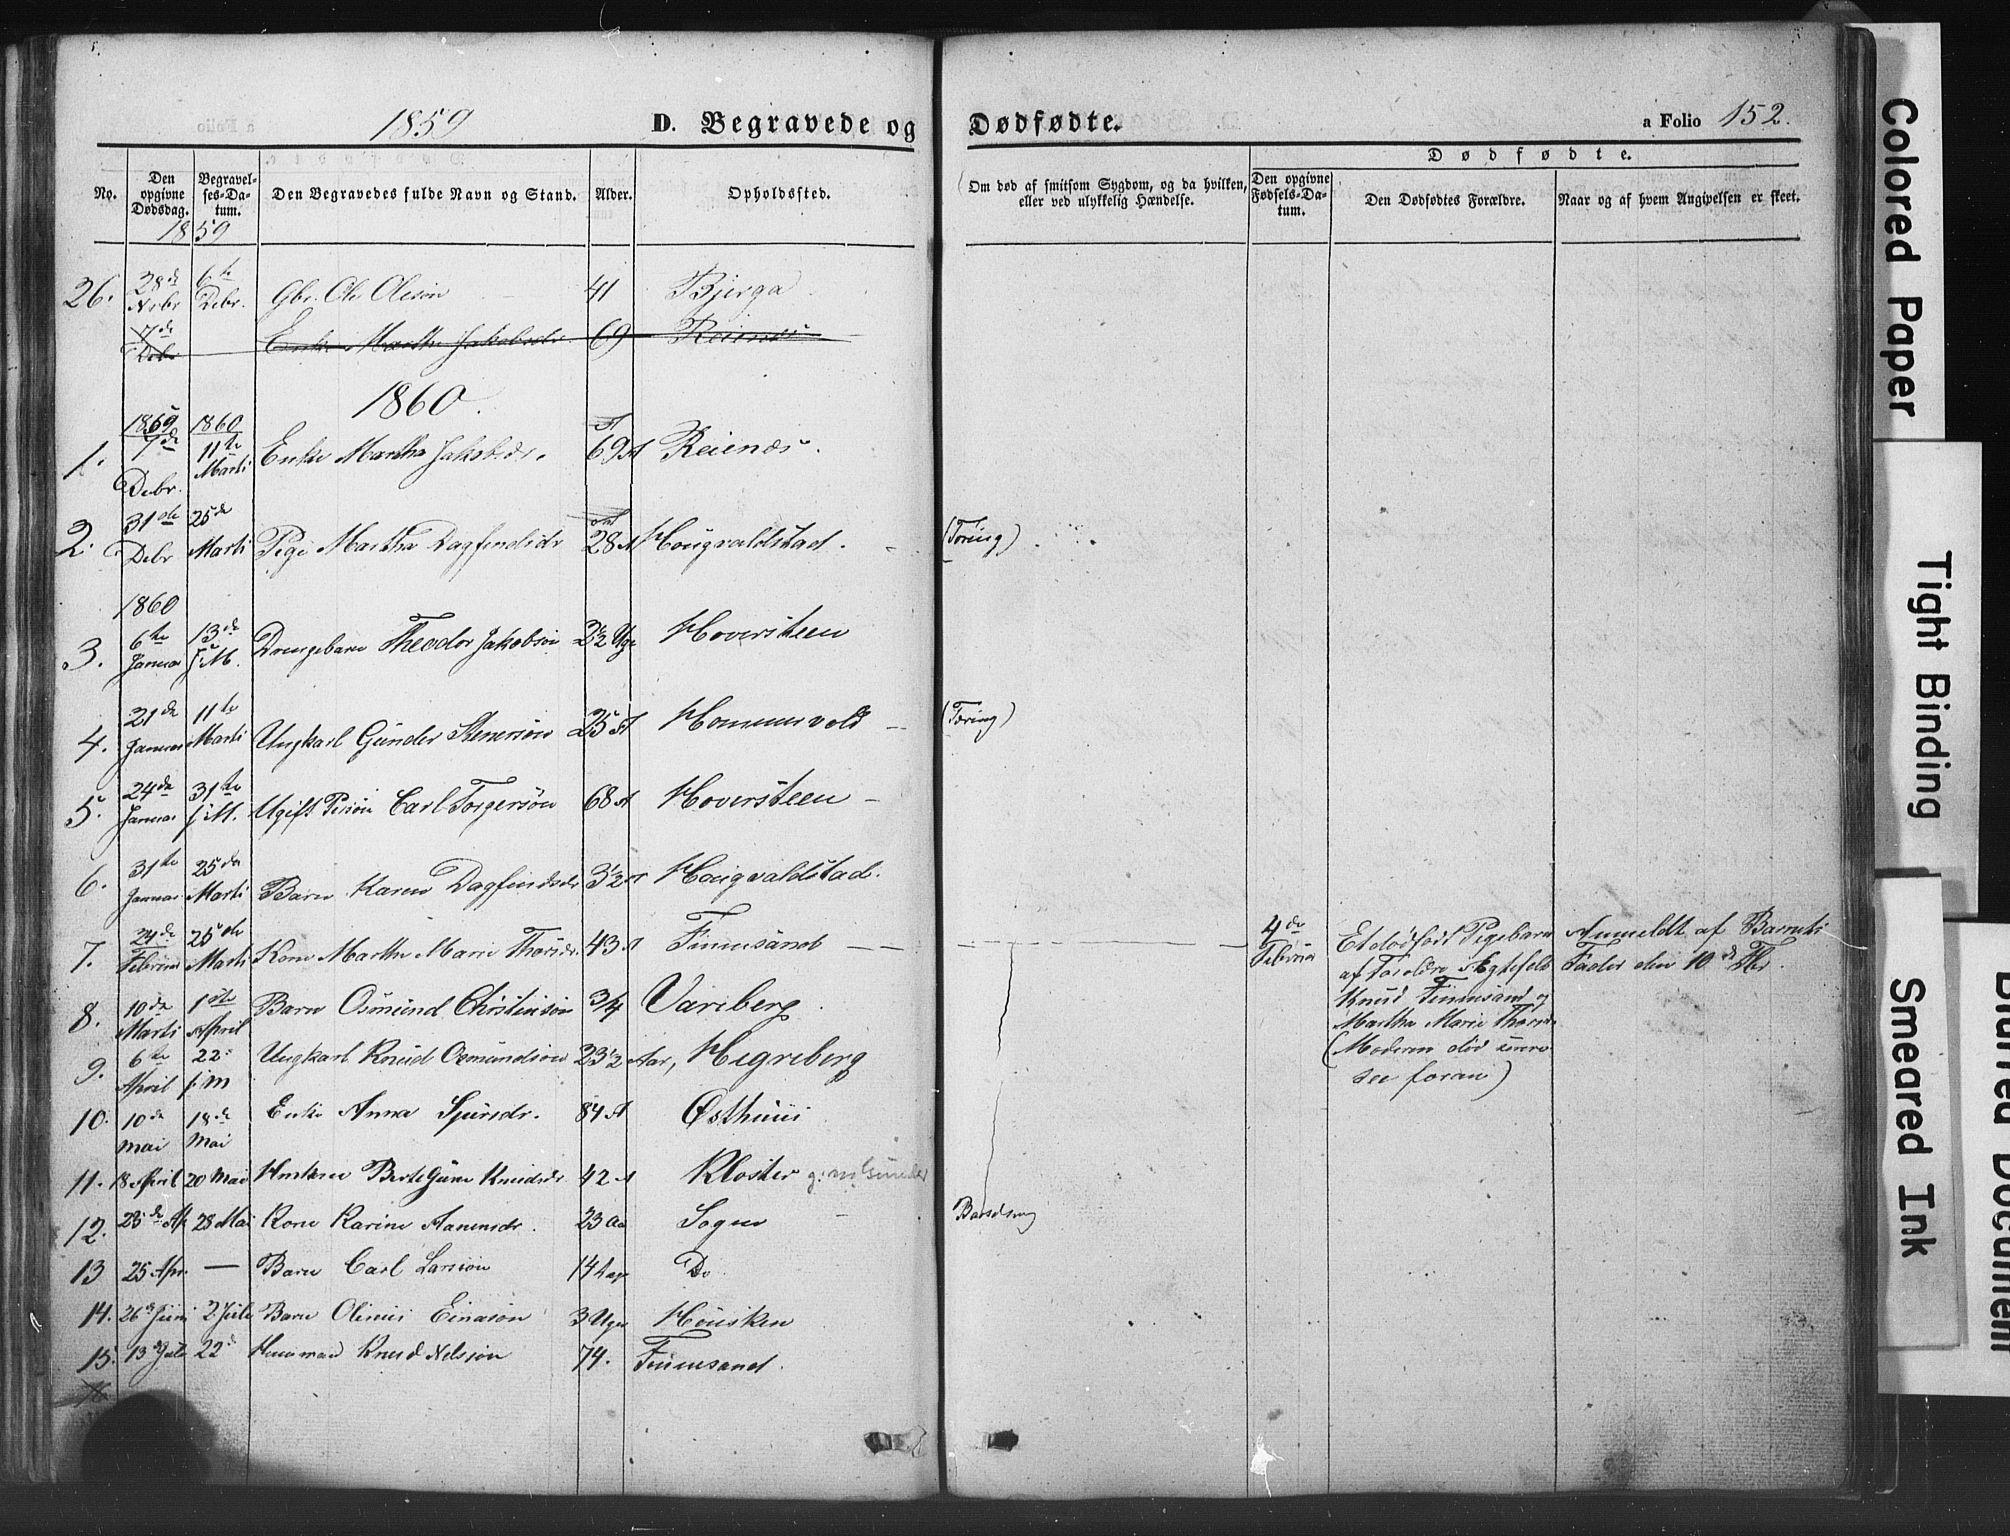 1859 D. Begravede og Dødfødte. a Folio 152.
No. Den opgivne Dødsdag. Begravelses-Datum. Den Begravedes fulde Navn og Stand. Alder. Opholdssted. Om død af smitsom Sygdom, og da hvilken, eller ved ulykkelig Hændelse. Dødfødte. Den opgivne Fødsels-Datum. Den Dødfødtes Forældre. Naar og af hvem Angivelsen er skeet.
1859
26. 28de Nvbr 6te Debr. Gbr. Ole Olesøn 41 Bjerga
7de Debr Enke Martha Jakobsdr. 69 Reienæs
1860.
1859 1860
1. 7de Debr. 11te Marti Enke Martha Jakobsdr. 69 A Reienæs.
2. 31te Debr 25de Marti Pige Martha Dagfindsdr 28 A Hougvaldstad. (Tæring)
1860
3. 6te Januar 13de s. M. Drengebarn Theodor Jakobsøn 2½ Uge Hoversteen
4. 21de Januar 11te Marti Ungkarl Gunder Stenersøn 25 A Hommersvold (Tæring)
5. 24de Januar 31te s. M. Ugift Person Carl Torgersøn 68 A Hoversteen
6. 31te Januar 25de Marti Barn Karen Dagfindsdr 3½ Hougvaldstad.
7. 24de Februar 25de Marti Kone Martha Marie Thorsdr. 43 A Finnesand
4de Februar Et dødfødt Pigebarn Anmeldt af Barnets
af Forældre Ægtefolk Fader den 10de Fbr.
Knud Finnesand og
Martha Marie Thorsdr
(Moderen død
see foran)
8. 10de Marti 1ste April Barn Osmund Christensøn 3/4 Varberg
9. 6te April 22 s. m Ungkarl Knud Osmundsøn 23½ Aar, Hegreberg
10. 10de mai 18de Mai Enke Anna Sjursdr. 84 A Østhuus
11. 18 April 20 Mai Huskone Berte Gurine Knudsdr 42 A Kloster g. m Gunder
12. 23de Ap 28 Mai Kone Karine Aanensdr. 23 Aa Sogn Barselseng
13 25 Apr. — Barn Carl Larsøn 14 Dage Do
14. 26 Juni 2 Julie Barn Olenus Einarsøn 3 Uger Housken
15. 13 Jule 22d Huusmand Knud Nelsøn 74. Finnesand.
16
Colored Paper
Tight Binding
Smeared Ink
Blurred Document